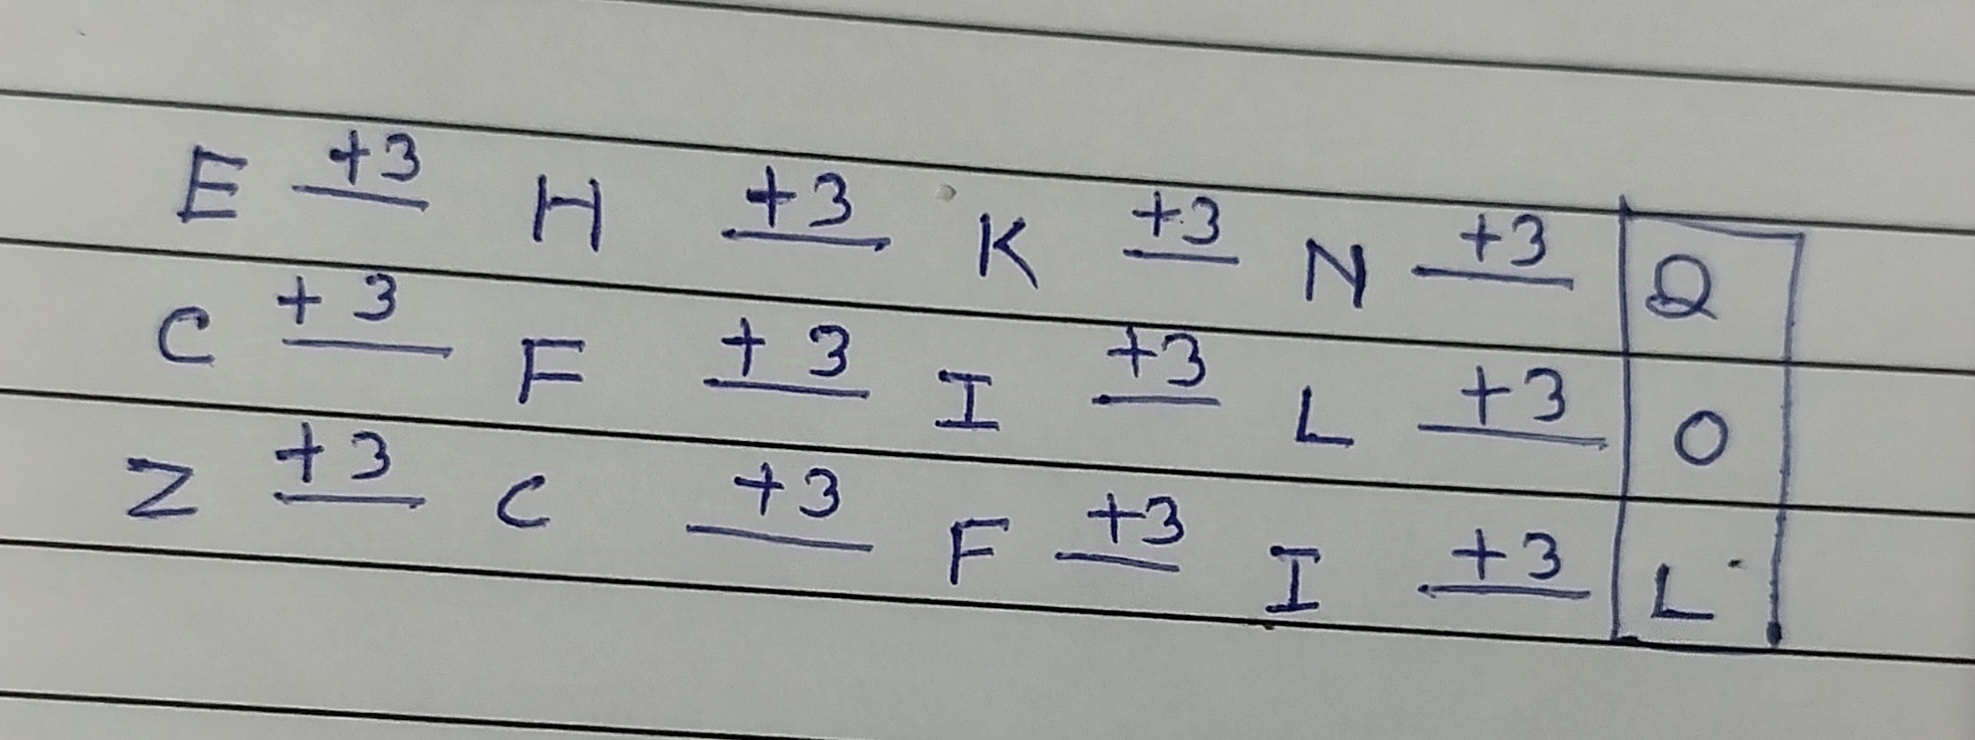 E +3 H +3 K +3 N +3 Q
C +3 F +3 I +3 L +3 O
Z +3 C +3 F +3 I +3 L